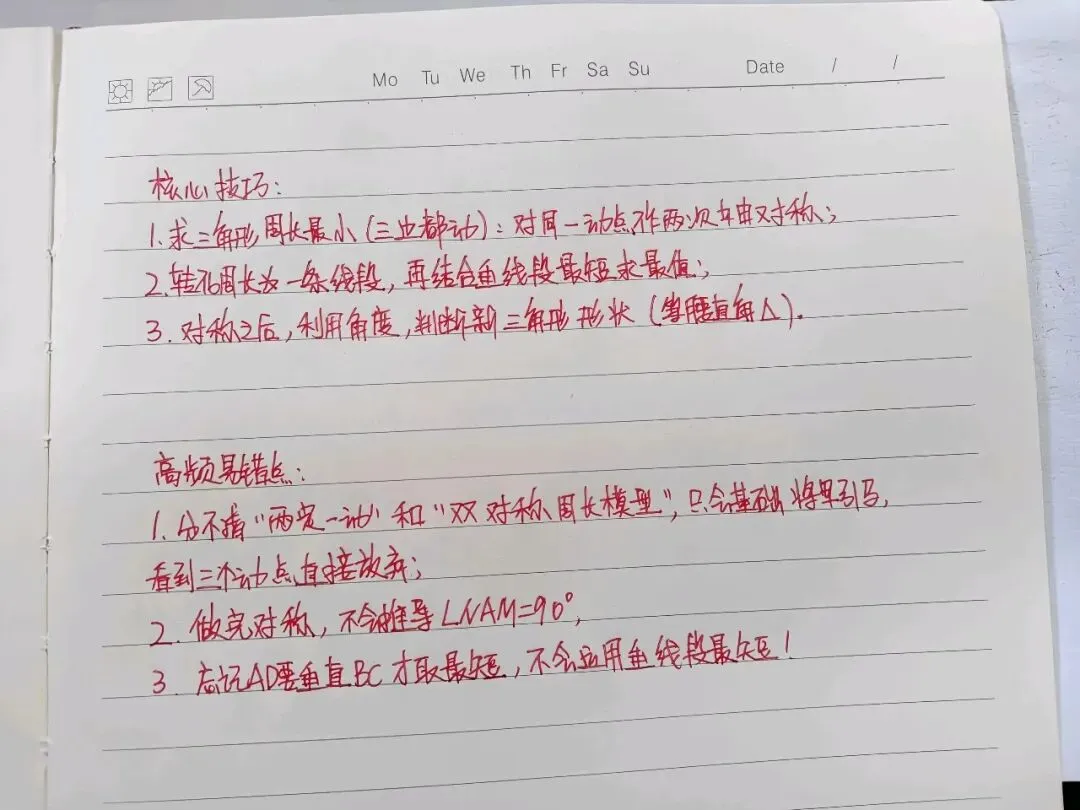 Mo Tu We Th Fr Sa Su Date / /
核心技巧:
1.求三角形周长最小(三边都动):对同一动点作两次轴对称;
2.转化周长为一条线段,再结合垂线段最短求最值;
3.对称之后,利用角度,判断新三角形形状(等腰直角△).
高频易错点:
1.分不清“两定一动”和“双对称周长模型”,只会基础将军饮马,
看到三个动点直接放弃;
2.做完对称,不会推导∠NAM=90°,
3.忘记AD要垂直BC才取最短,不会运用垂线段最短!